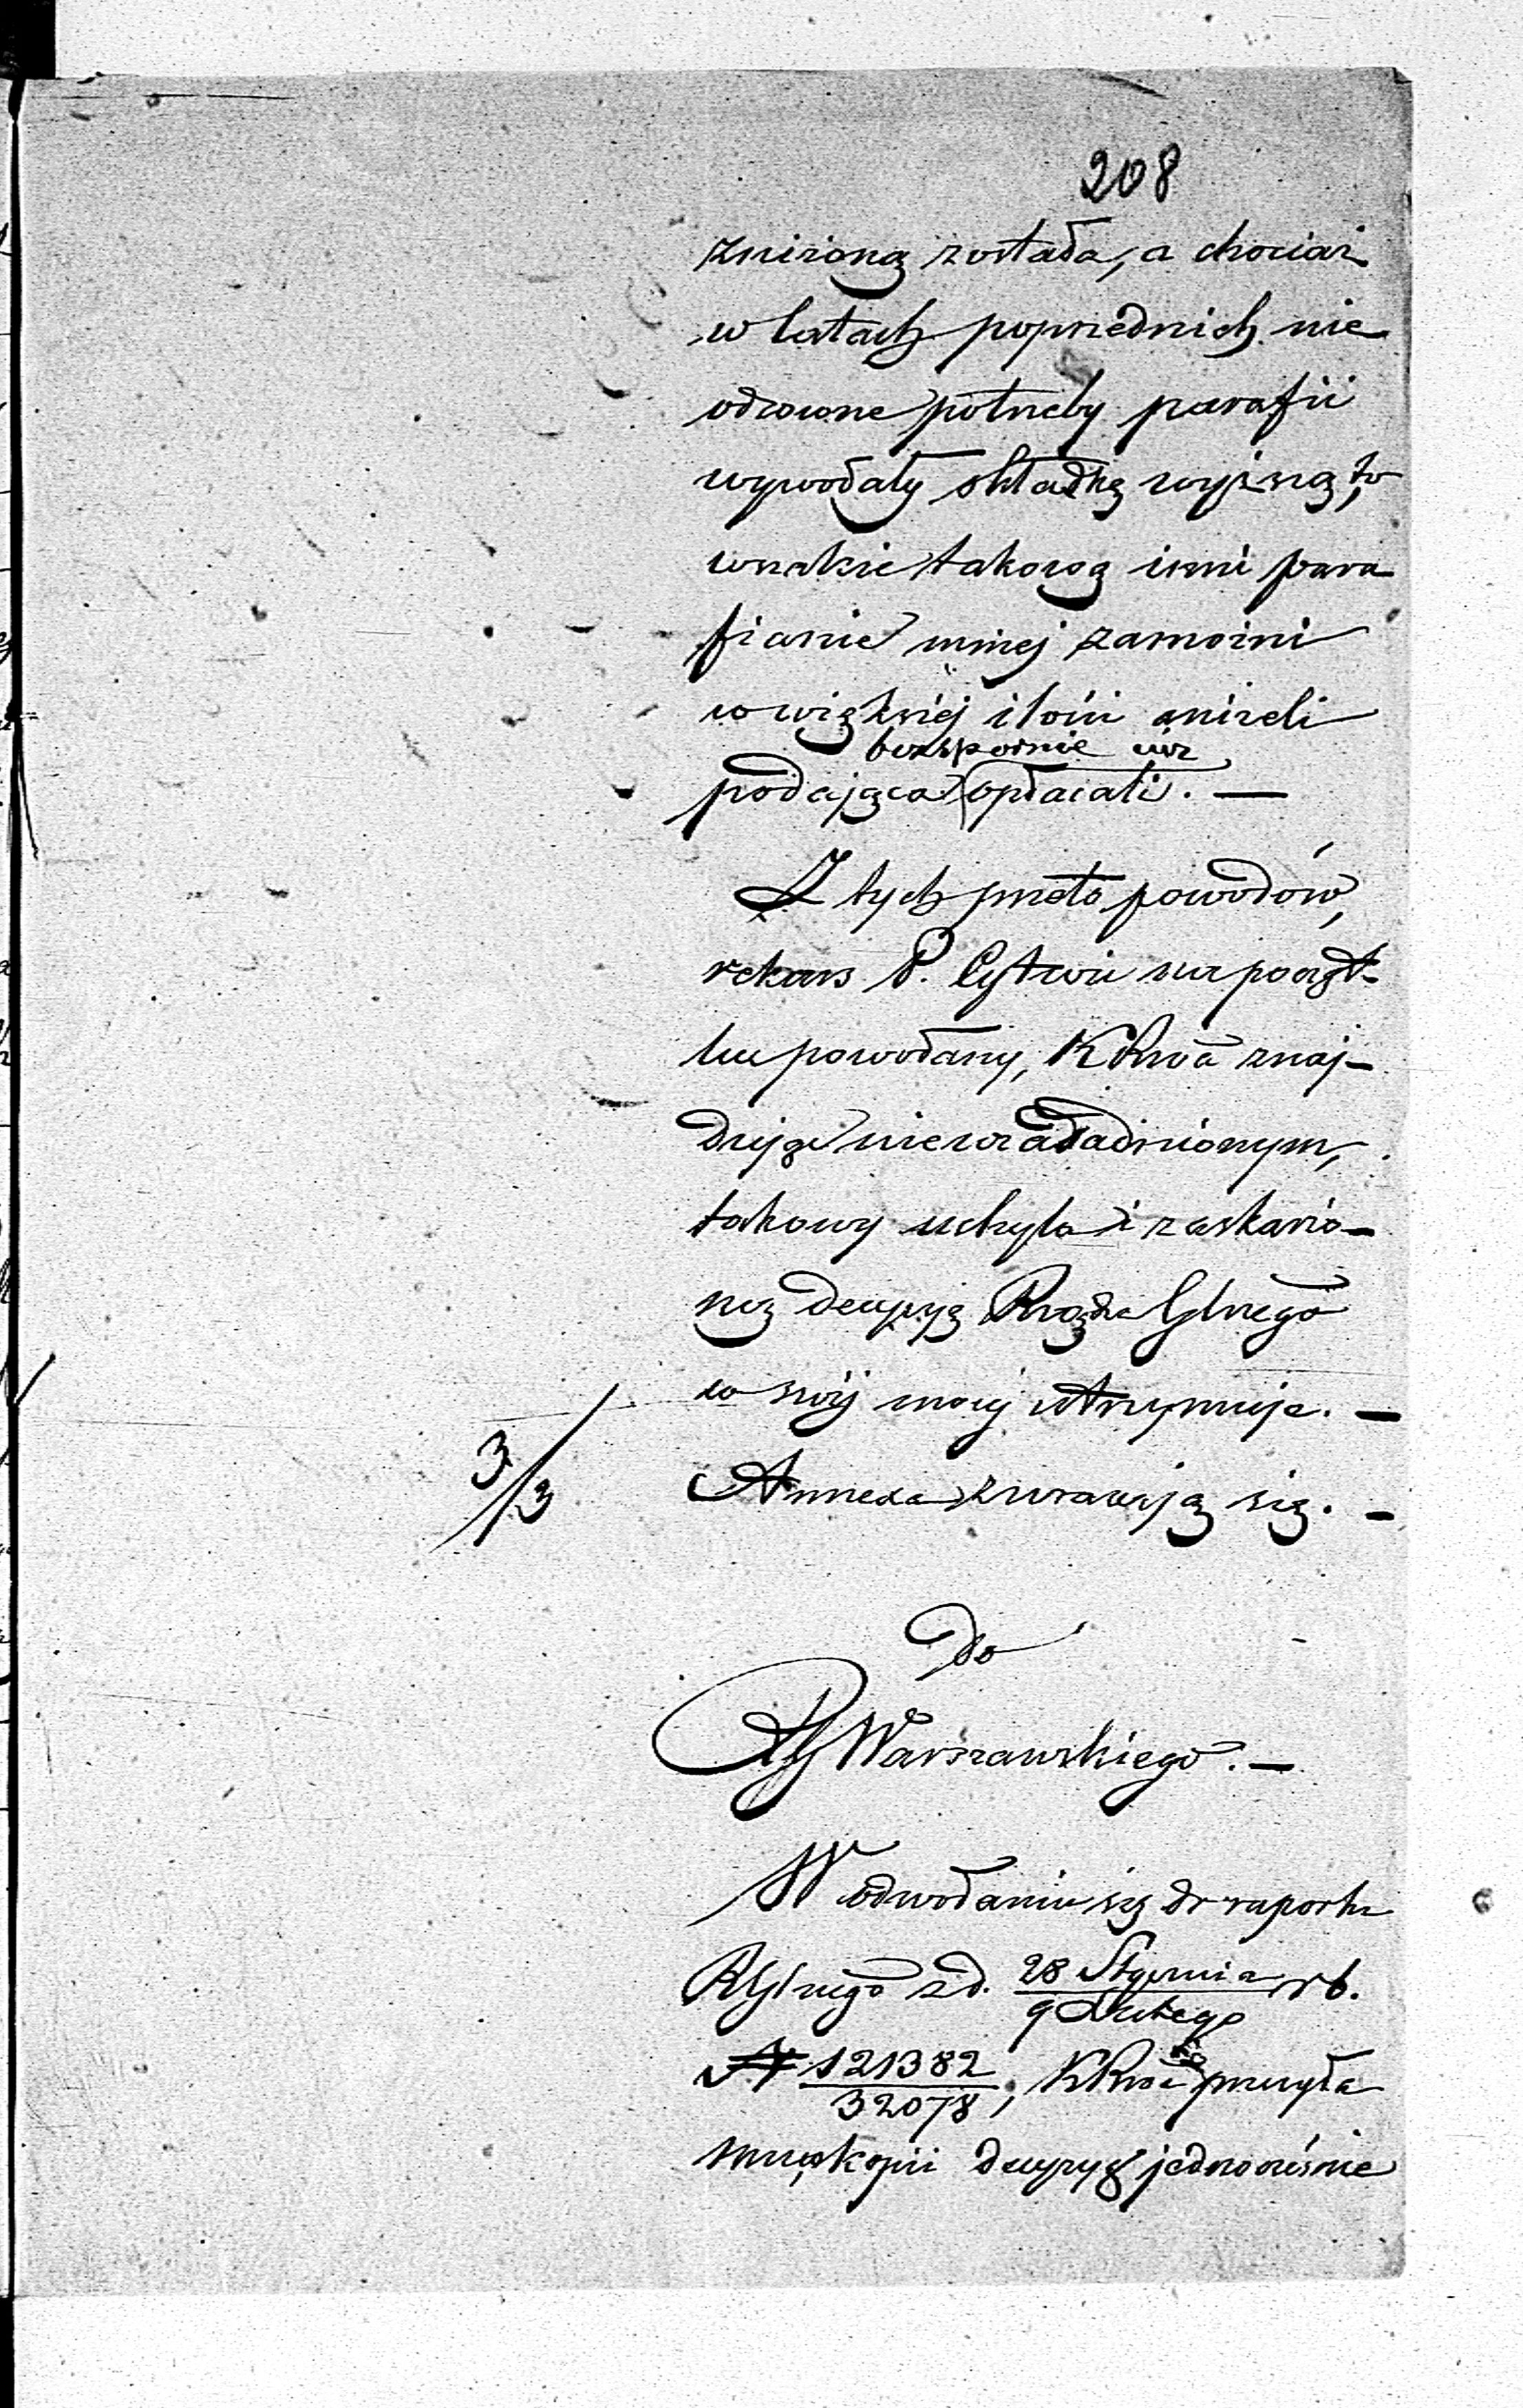 208
zniżoną została, a chociaż
w latach poprzednich nie
odzowne potrzeby parafii
wywołały składkę wyższą, to
wszakże takową inni para
fianie mniej zamożni
w większéj ilości aniżeli
bezspornie
podająca opłacali. —
Z tych przeto powodów,
rekurs P. Cytwic na począt-
ku powołany, KRwa znaj-
duje nieuzasadnionym,
takowy uchyla i zaskarżo-
ną decyzyę Rządu Glnego
w swéj mocy utrzymuje. —
3/3 Annexa zwracają się. —
Do
RG Warszawskiego. —
W odwołaniu się do raportu
RGlnego z d. 28 Stycznia / 9 Lutego r b.
N 121382 / 32078, KRwa przesyła
mu w kopii decyzyę jednocześnie